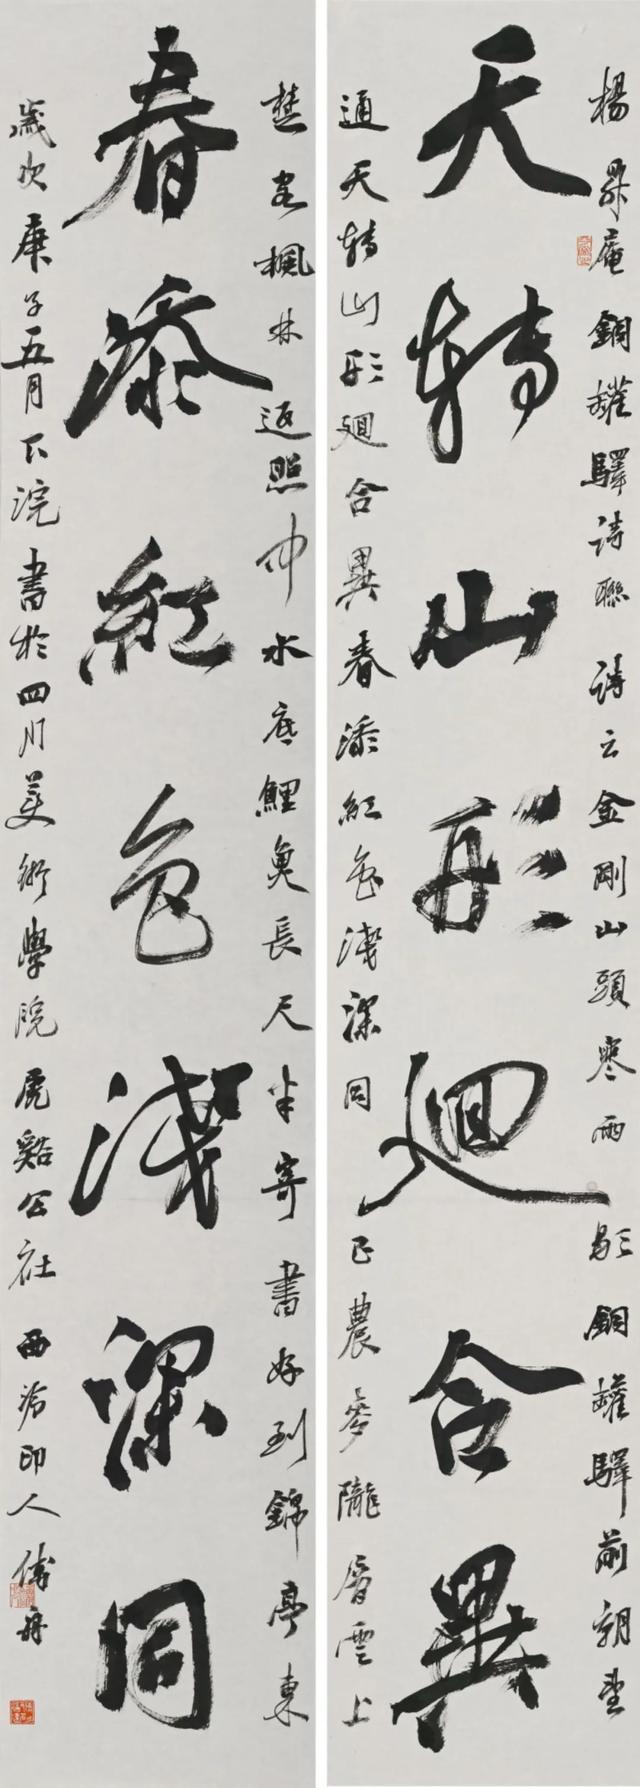 天轉山形迴合異
楊昇庵銅罐驛詩聯 詩云金剛山頭寒雨歇銅罐驛前朝望
通天轉山形迴合異春添紅色淺深同巴農麥隴層雲上
春添紅色淺深同
楚客楓林返照中水底鯉魚長尺半寄書好到錦亭東
歲次庚子五月下浣書於四川美術學院虎谿公社西泠印人傅舟